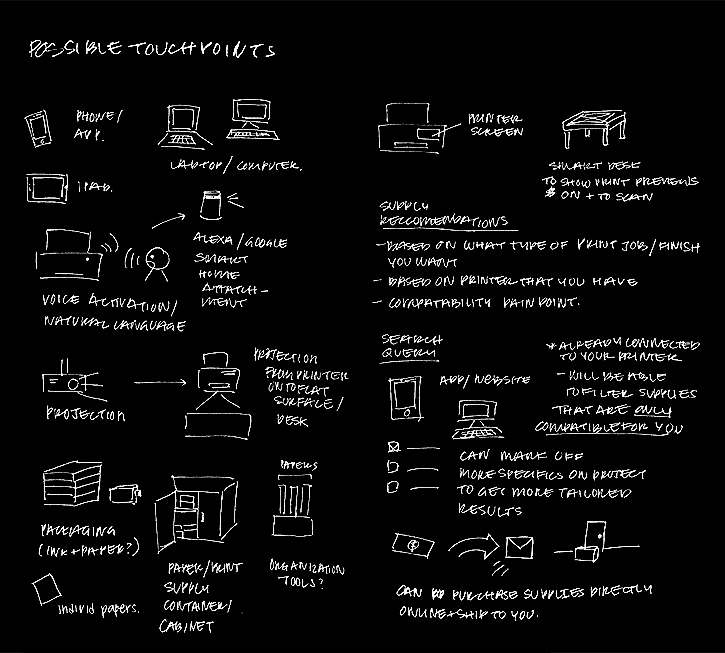 POSSIBLE TOUCHPOINTS
PHONE/
APP.
LAPTOP/COMPUTER.
IPAD.
ALEXA/GOOGLE
SMART
HOME
ATTACH-
MENT
VOICE ACTIVATION/
NATURAL LANGUAGE
PROJECTION
PROJECTION
FROM PRINTER
ONTO FLAT
SURFACE/
DESK
PACKAGING
(INK+PAPER?)
individ papers.
PAPER/PRINT
SUPPLY
CONTAINER/
CABINET
PAPERS
ORGANIZATION
TOOLS?
PRINTER
SCREEN
SMART DESK
TO SHOW PRINT PREVIEWS
ON + TO SCAN
SUPPLY
RECCOMENDATIONS
- BASED ON WHAT TYPE OF PRINT JOB/FINISH
YOU WANT
- BASED ON PRINTER THAT YOU HAVE
- COMPATABILITY PAIN POINT.
SEARCH
QUERY
APP/WEBSITE
* ALREADY CONNECTED
TO YOUR PRINTER
- WILL BE ABLE
TO FILTER SUPPLIES
THAT ARE ONLY
COMPATIBLE FOR YOU
CAN MARK OFF
MORE SPECIFICS ON PROJECT
TO GET MORE TAILORED
RESULTS
$
CAN PURCHASE SUPPLIES DIRECTLY
ONLINE + SHIP TO YOU.